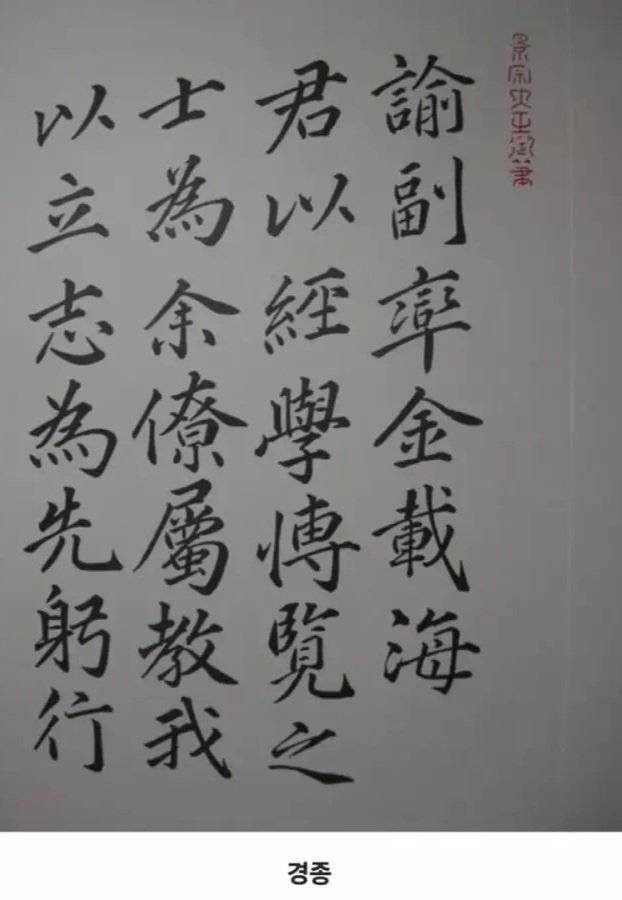 景宗大王御筆
諭副率金載海
君以經學博覽之
士為余僚屬教我
以立志為先躬行
경종